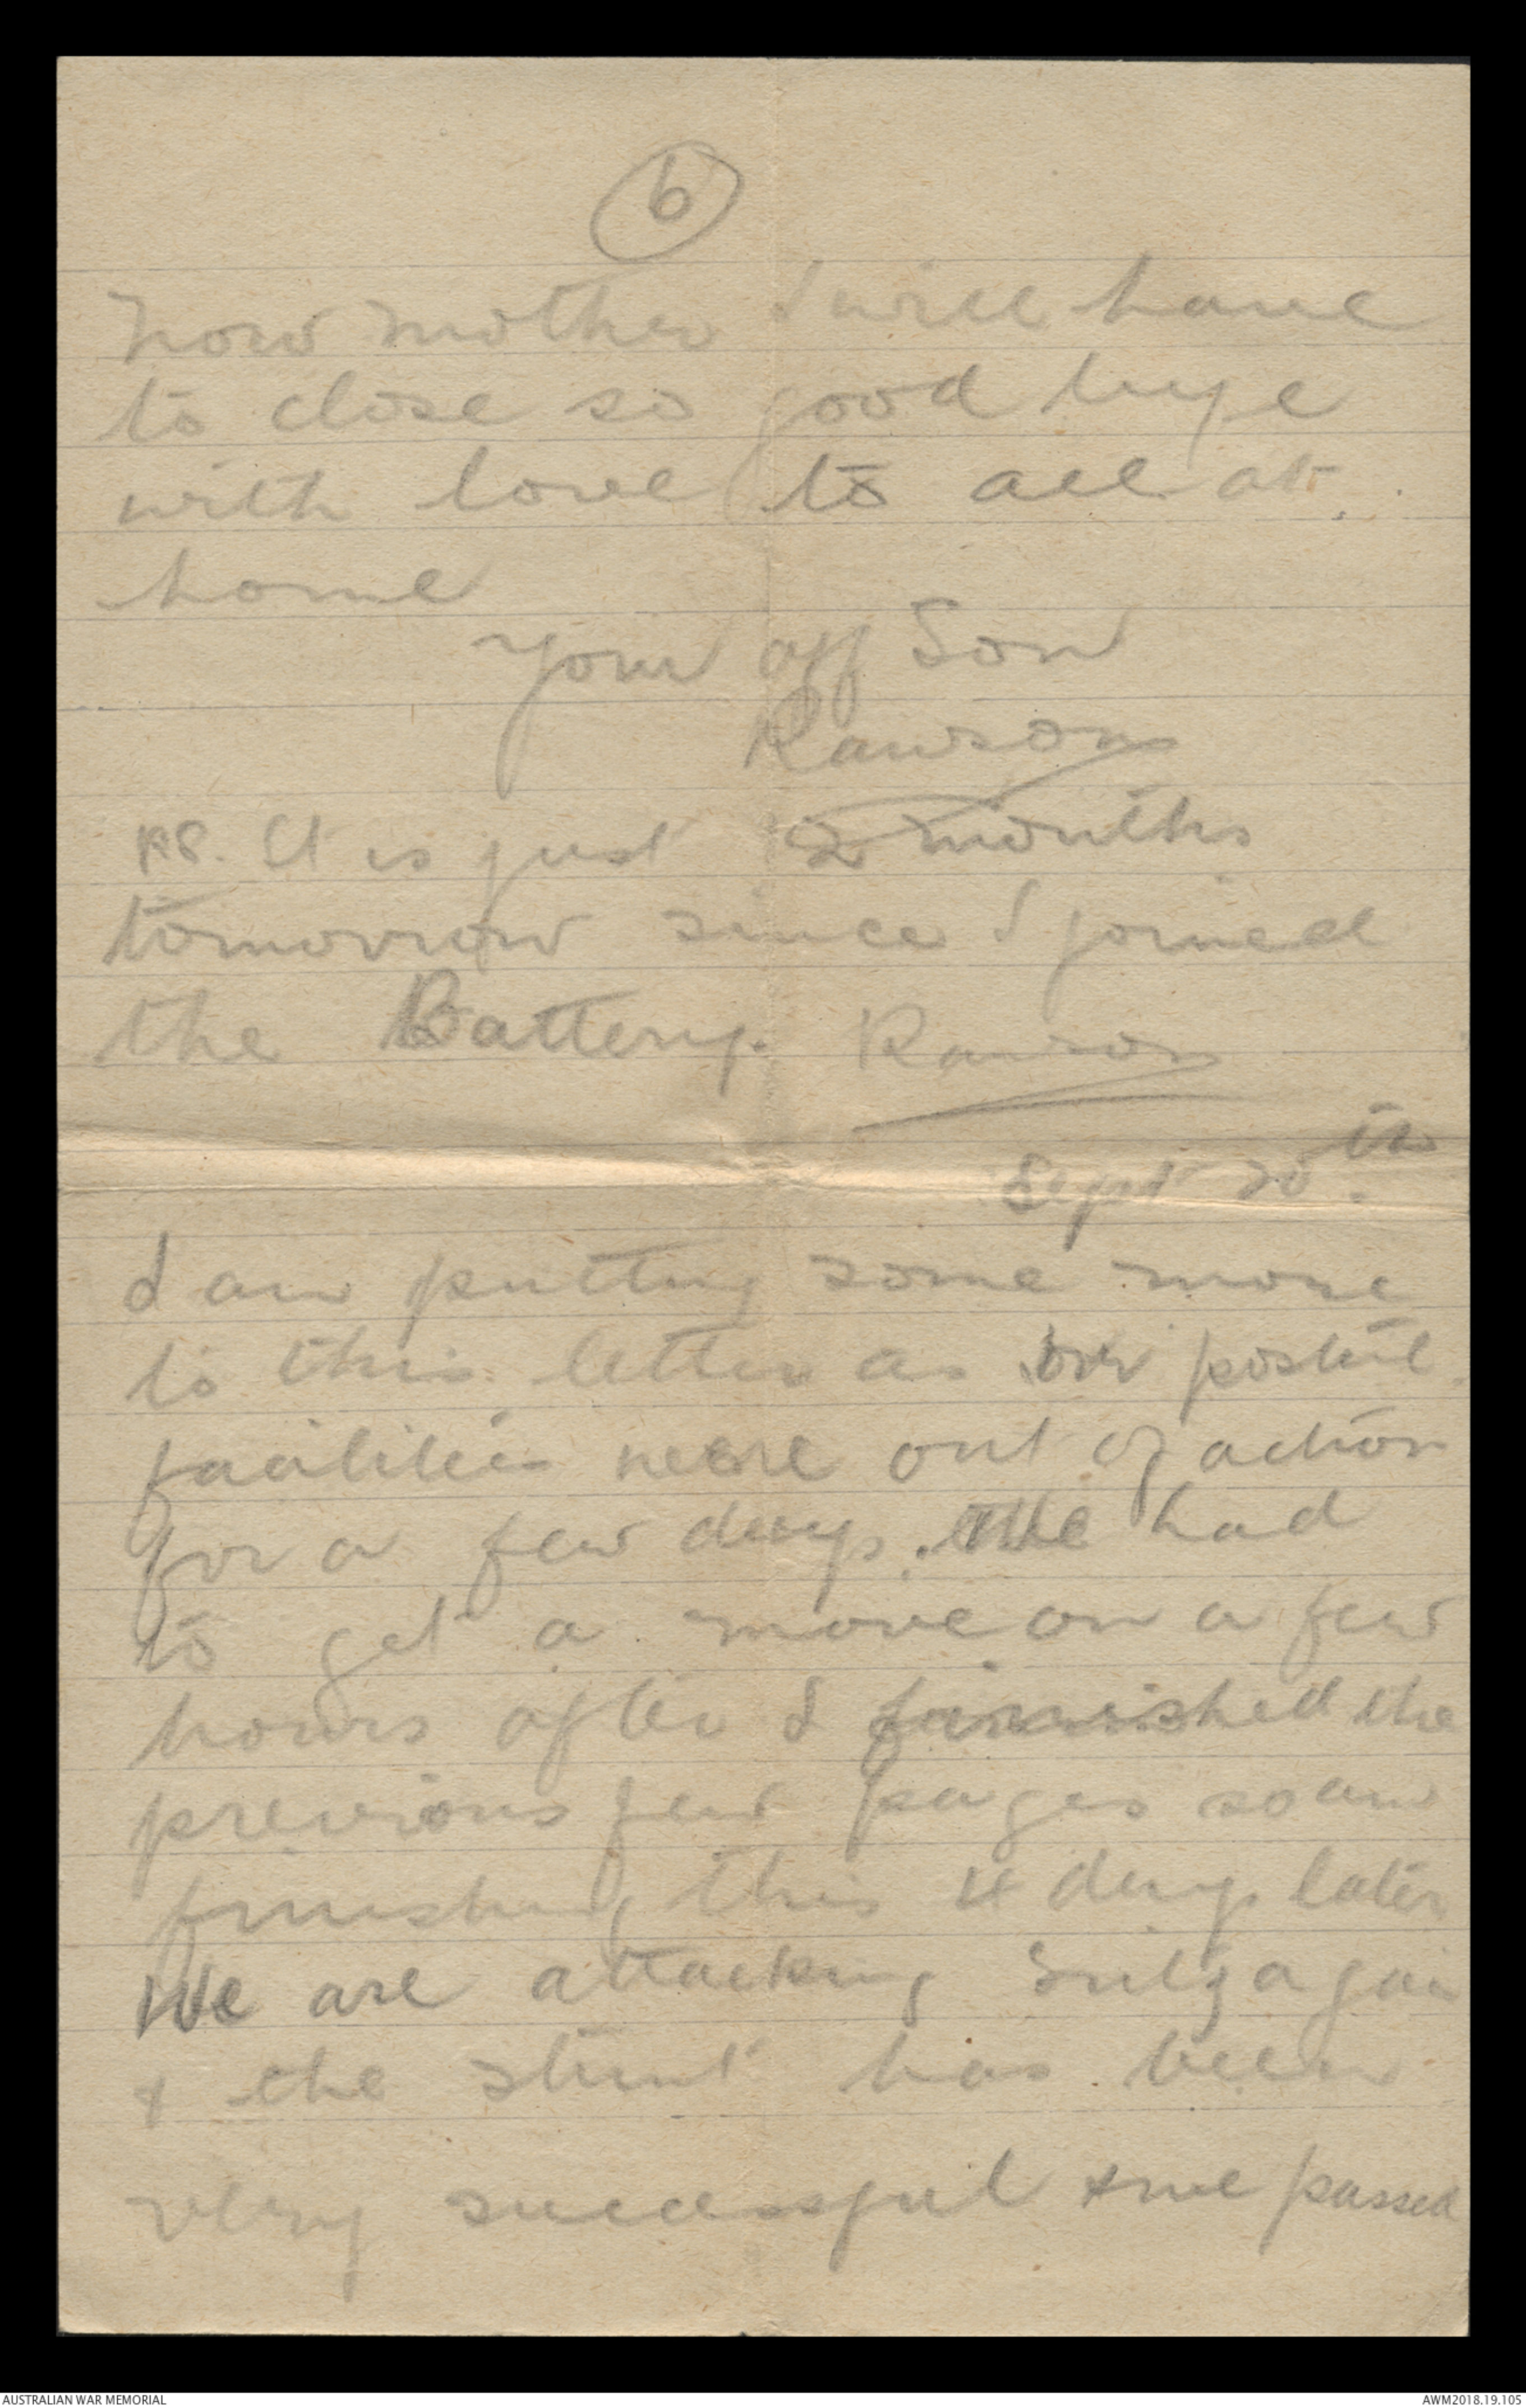 6
Now mother I will have
to close so good bye
with love to all at
home
Your aff Son
Rawson
P.S. It is just 2 months
tomorrow since I joined
the Battery. Rawson
Sept 20th
I am putting some more
to this letter as our postal
facilities were out of action
for a few days. We had
to get a move on a few
hours after I finished the
previous few pages so am
finishing this 4 days later
We are attacking Fritz again
& the stunt has been
very successful & we passed
AUSTRALIAN WAR MEMORIAL
AWM2018.19.105